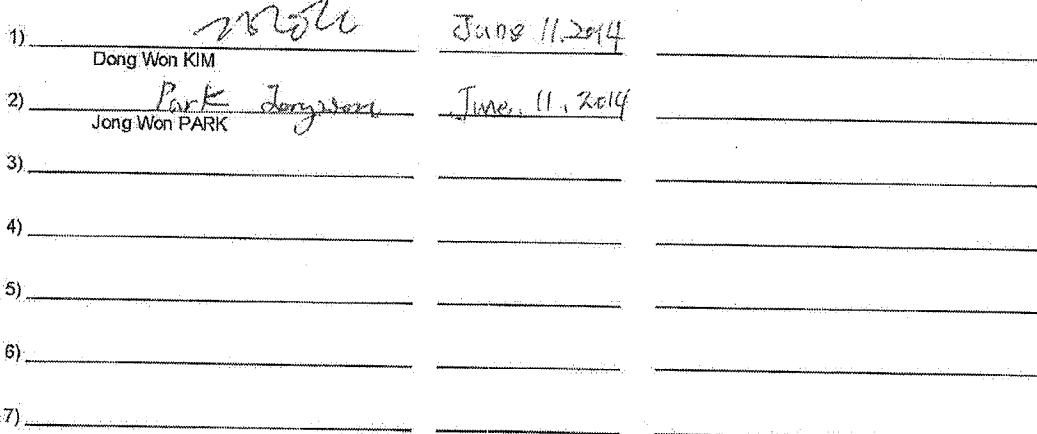 1) June 11, 2014
Dong Won KIM
2) Park Jongwon June. 11, 2014
Jong Won PARK
3)
4)
5)
6)
7)